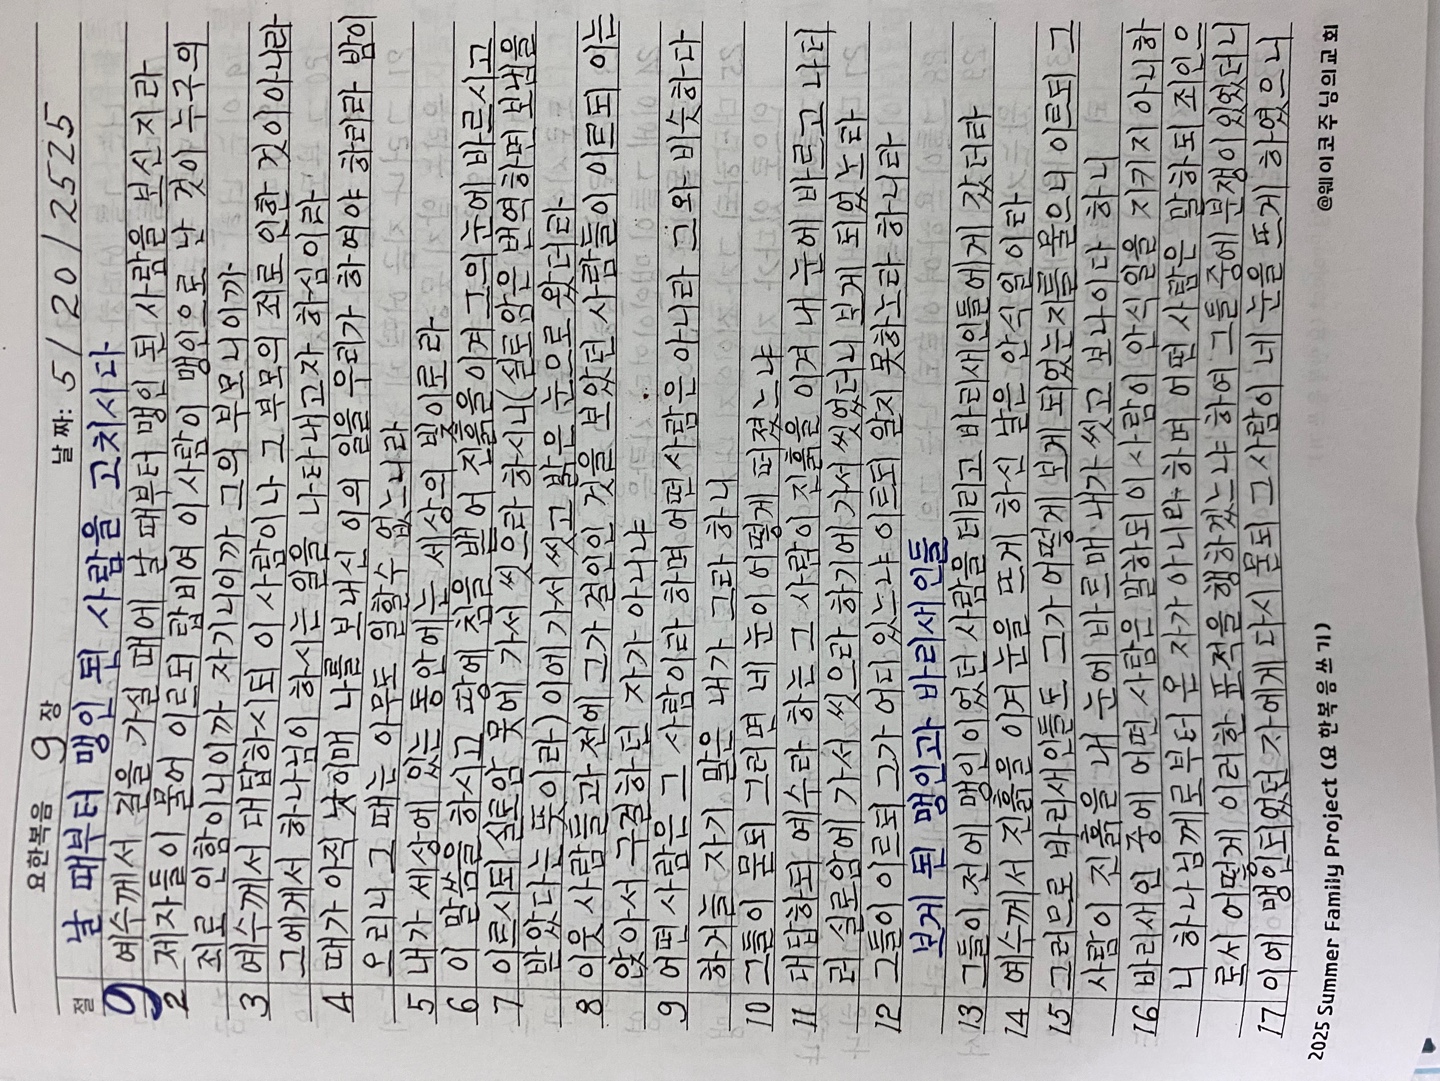 요한복음 9 장 날 짜: 5 / 20 / 2525
절 날 때부터 맹인 된 사람을 고치시다
9 예수께서 길을 가실 때에 날 때부터 맹인 된 사람을 보신지라
2 제자들이 물어 이르되 랍비여 이 사람이 맹인으로 난 것이 누구의
죄로 인함이니이까 자기니이까 그의 부모니이까
3 예수께서 대답하시되 이 사람이나 그 부모의 죄로 인한 것이 아니라
그에게서 하나님이 하시는 일을 나타내고자 하심이라
4 때가 아직 낮이매 나를 보내신 이의 일을 우리가 하여야 하리라 밤이
오리니 그 때는 아무도 일할수 없느니라
5 내가 세상에 있는 동안에는 세상의 빛이로라
6 이 말씀을 하시고 땅에 침을 뱉어 진흙을 이겨 그의 눈에 바르시고
7 이르시되 실로암 못에 가서 씻으라 하시니 (실로암은 번역하면 보냄을
받았다는 뜻이라) 이에 가서 씻고 밝은 눈으로 왔더라
8 이웃 사람들과 전에 그가 걸인인 것을 보았던 사람들이 이르되 이는
앉아서 구걸하던 자가 아니냐
9 어떤 사람은 그 사람이라 하며 어떤 사람은 아니라 그와 비슷하다
하거늘 자기 말은 내가 그라 하니
10 그들이 묻되 그러면 네 눈이 어떻게 떠졌느냐
11 대답하되 예수라 하는 그 사람이 진흙을 이겨 내 눈에 바르고 나더
러 실로암에 가서 씻으라 하기에 가서 씻었더니 보게 되었노라
12 그들이 이르되 그가 어디 있느냐 이르되 알지 못하노라 하니라
보게 된 맹인과 바리새인들
13 그들이 전에 맹인이었던 사람을 데리고 바리새인들에게 갔더라
14 예수께서 진흙을 이겨 눈을 뜨게 하신 날은 안식일이라
15 그러므로 바리새인들도 그가 어떻게 보게 되었는지를 물으니 이르되 그
사람이 진흙을 내 눈에 바르매 내가 씻고 보나이다 하니
16 바리새인 중에 어떤 사람은 말하되 이 사람이 안식일을 지키지 아니하
니 하나님께로부터 온 자가 아니라 하며 어떤 사람은 말하되 죄인으
로서 어떻게 이러한 표적을 행하겠느냐 하여 그들 중에 분쟁이 있었더니
17 이에 맹인되었던 자에게 다시 묻되 그 사람이 네 눈을 뜨게 하였으니
2025 Summer Family Project (요 한복음 쓰 기) @웨이코주님의교회